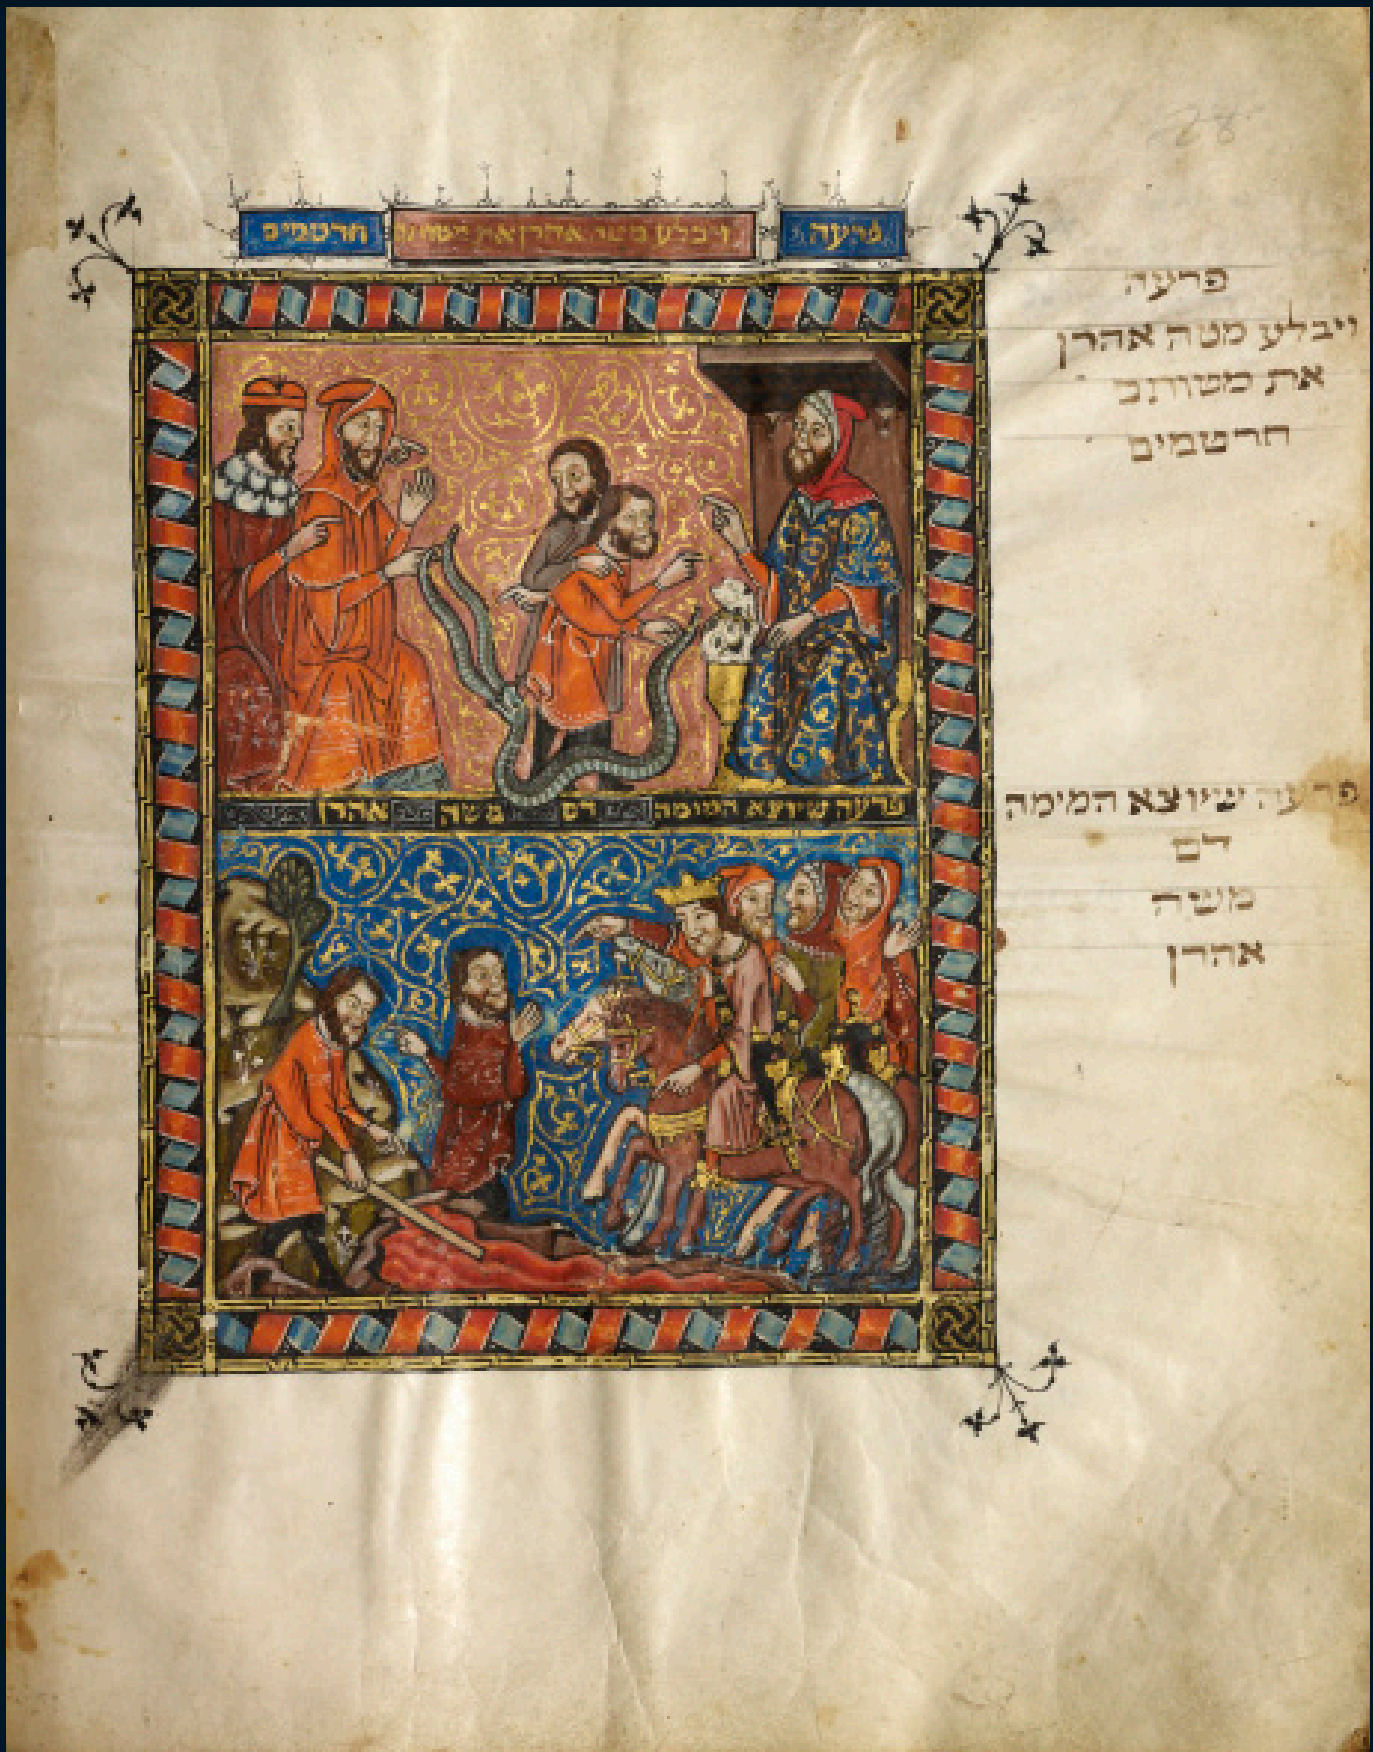 פרעה ויבלע מטה אהרן את מטותם חרטמים
פרעה
ויבלע מטה אהרן
את מטותם
חרטמים
פרעה שיוצא המימה דם משה אהרן
פרעה שיוצא המימה
דם
משה
אהרן